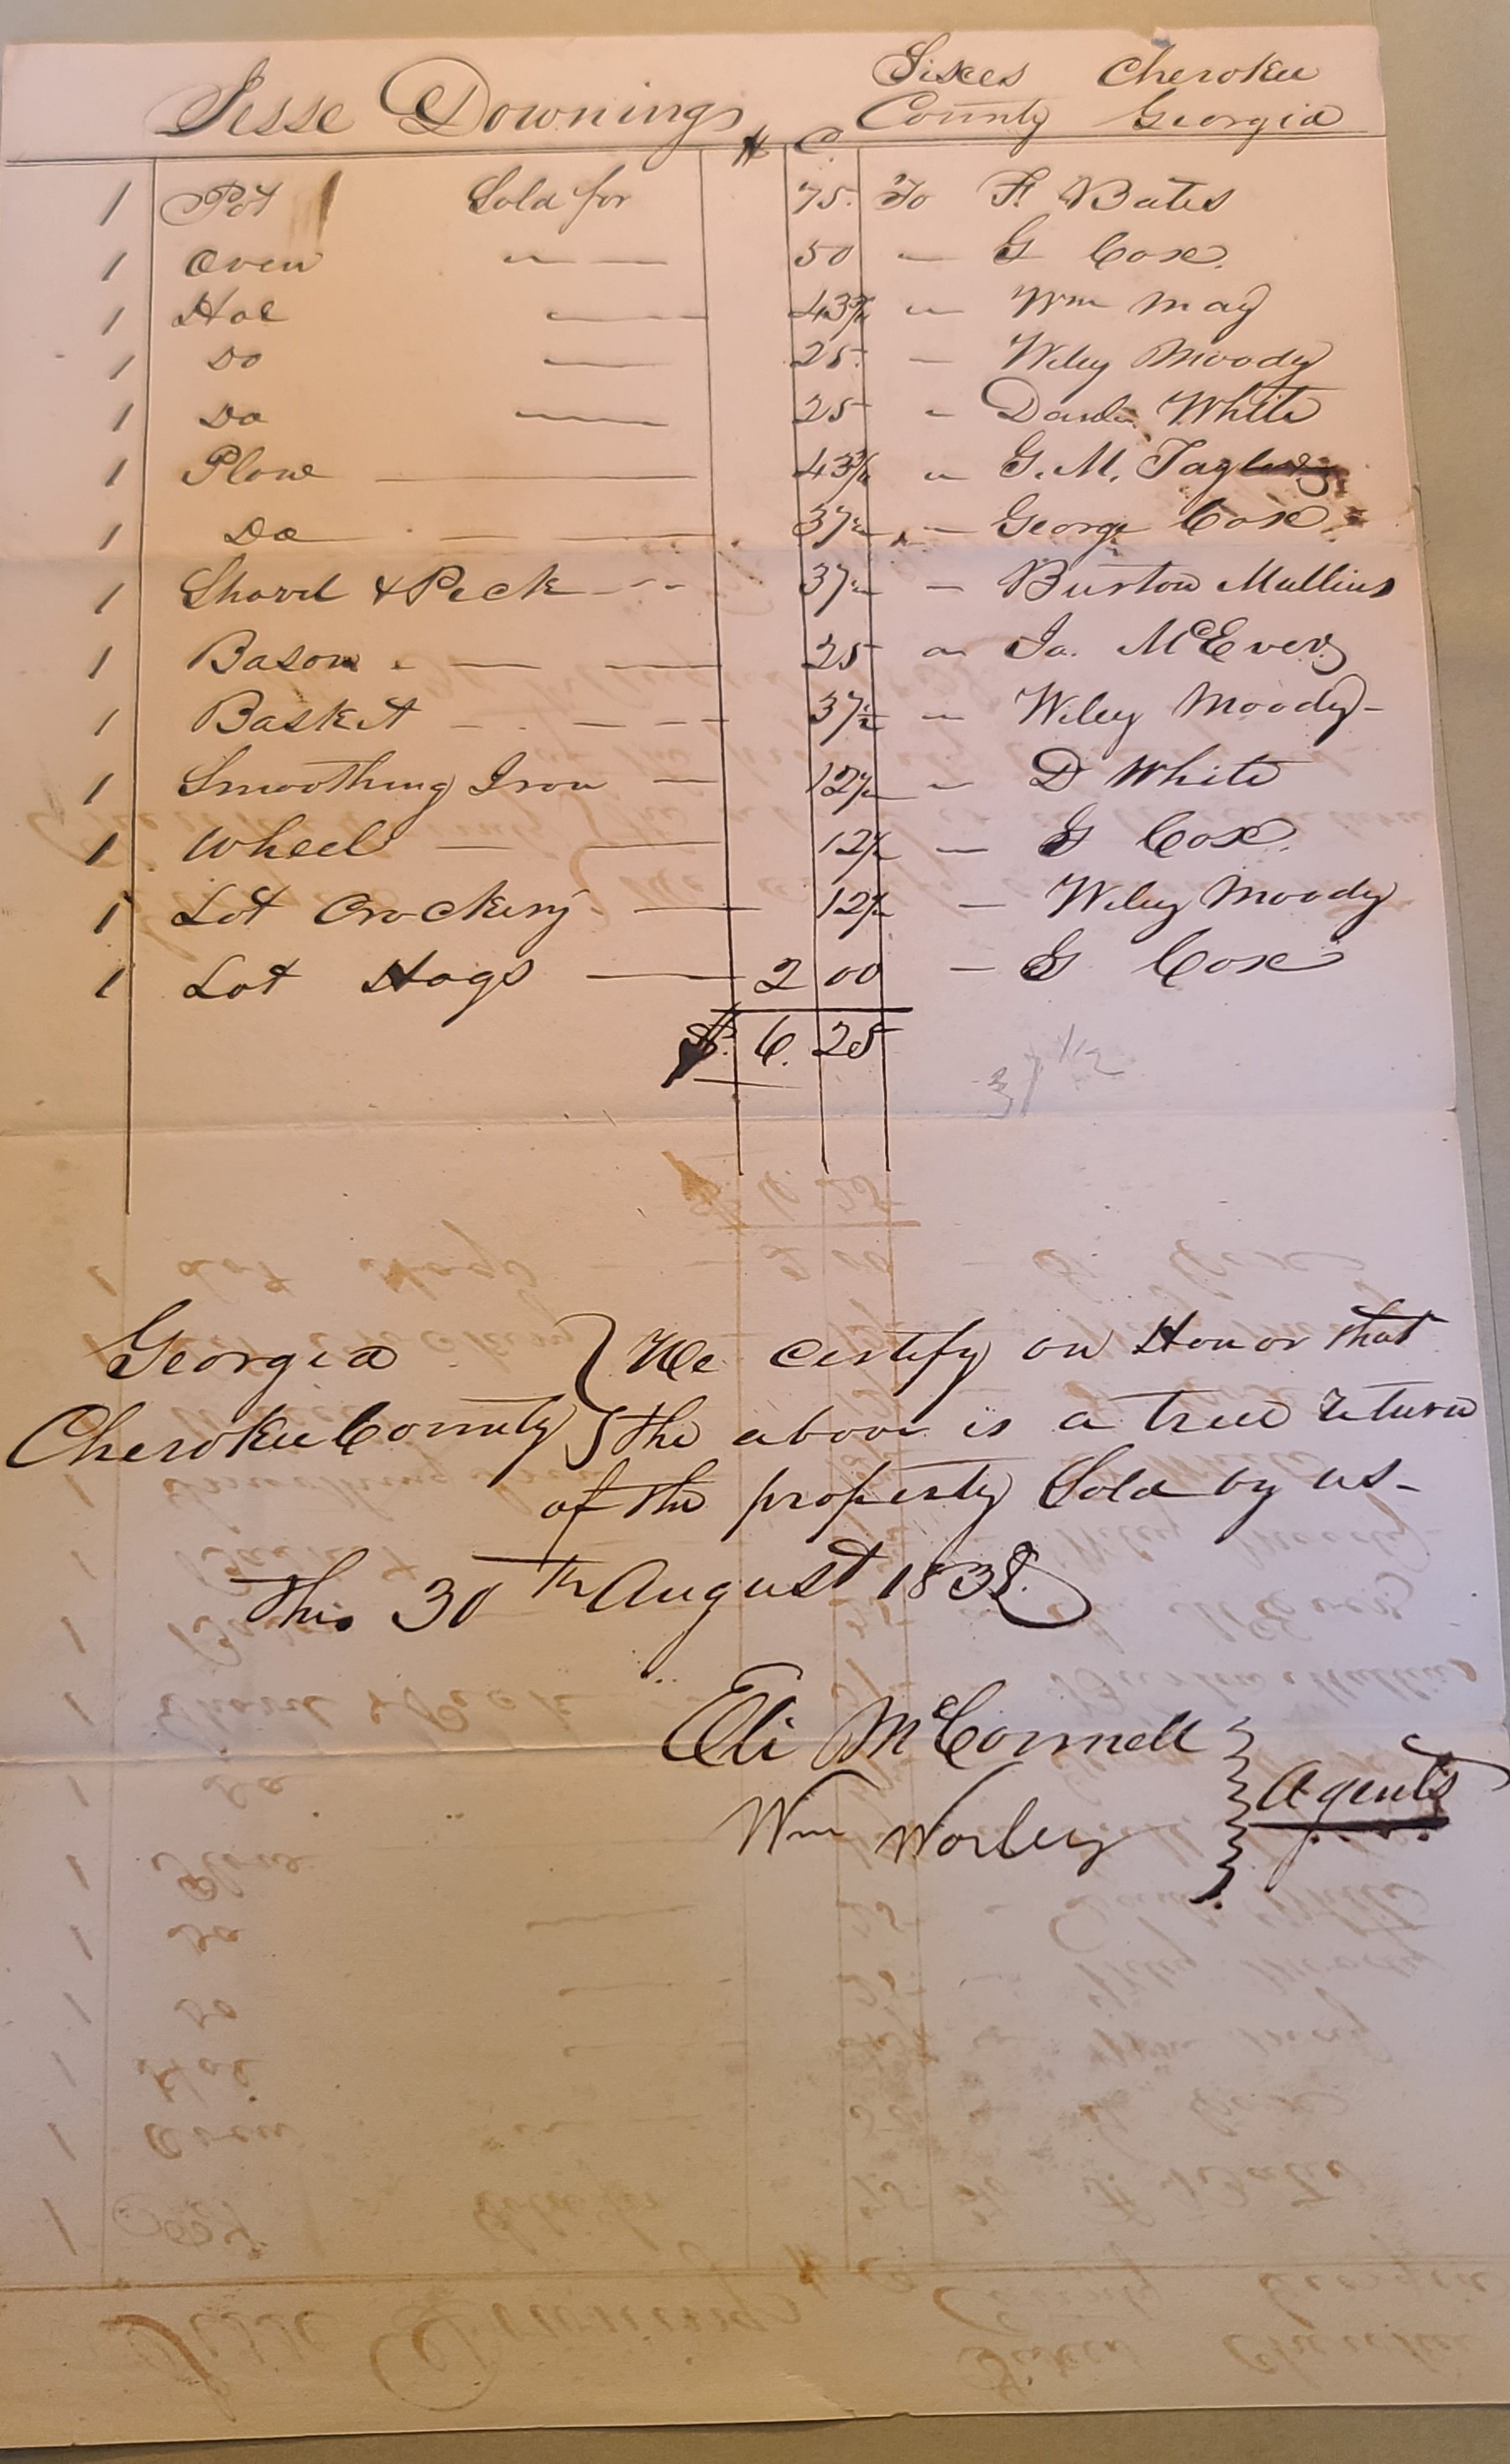 Jesse Downings Sixes Cherokee
County Georgia
$ C
1 Pot Sold for 75 To F. Bates
1 Oven " — 50 — G Cox
1 Hoe — 43¾ " Wm May
1 Do — 25 — Wiley Moody
1 Do — 25 " White
1 Plow — 43¾ " G. M. Tagler
1 Do — — — 37½ — George Cox
1 Shovel & Peck - - 37½ — Burton Mullins
1 Bason — — 25 " Ja. McEver
1 Basket - - - - 37½ " Wiley Moody -
1 Smoothing Iron — 12½ " D White
1 Wheel — — 12½ — G Cox
1 Lot Crockery — 12½ — Wiley Moody
1 Lot Hogs — 2 00 — G Cox
$ 6. 25
37 1/2
Georgia } We certify on Honor that
Cherokee County } the above is a true return
of the property Sold by us -
this 30th August 1838.
Eli McConnell } Agents
Wm Worley